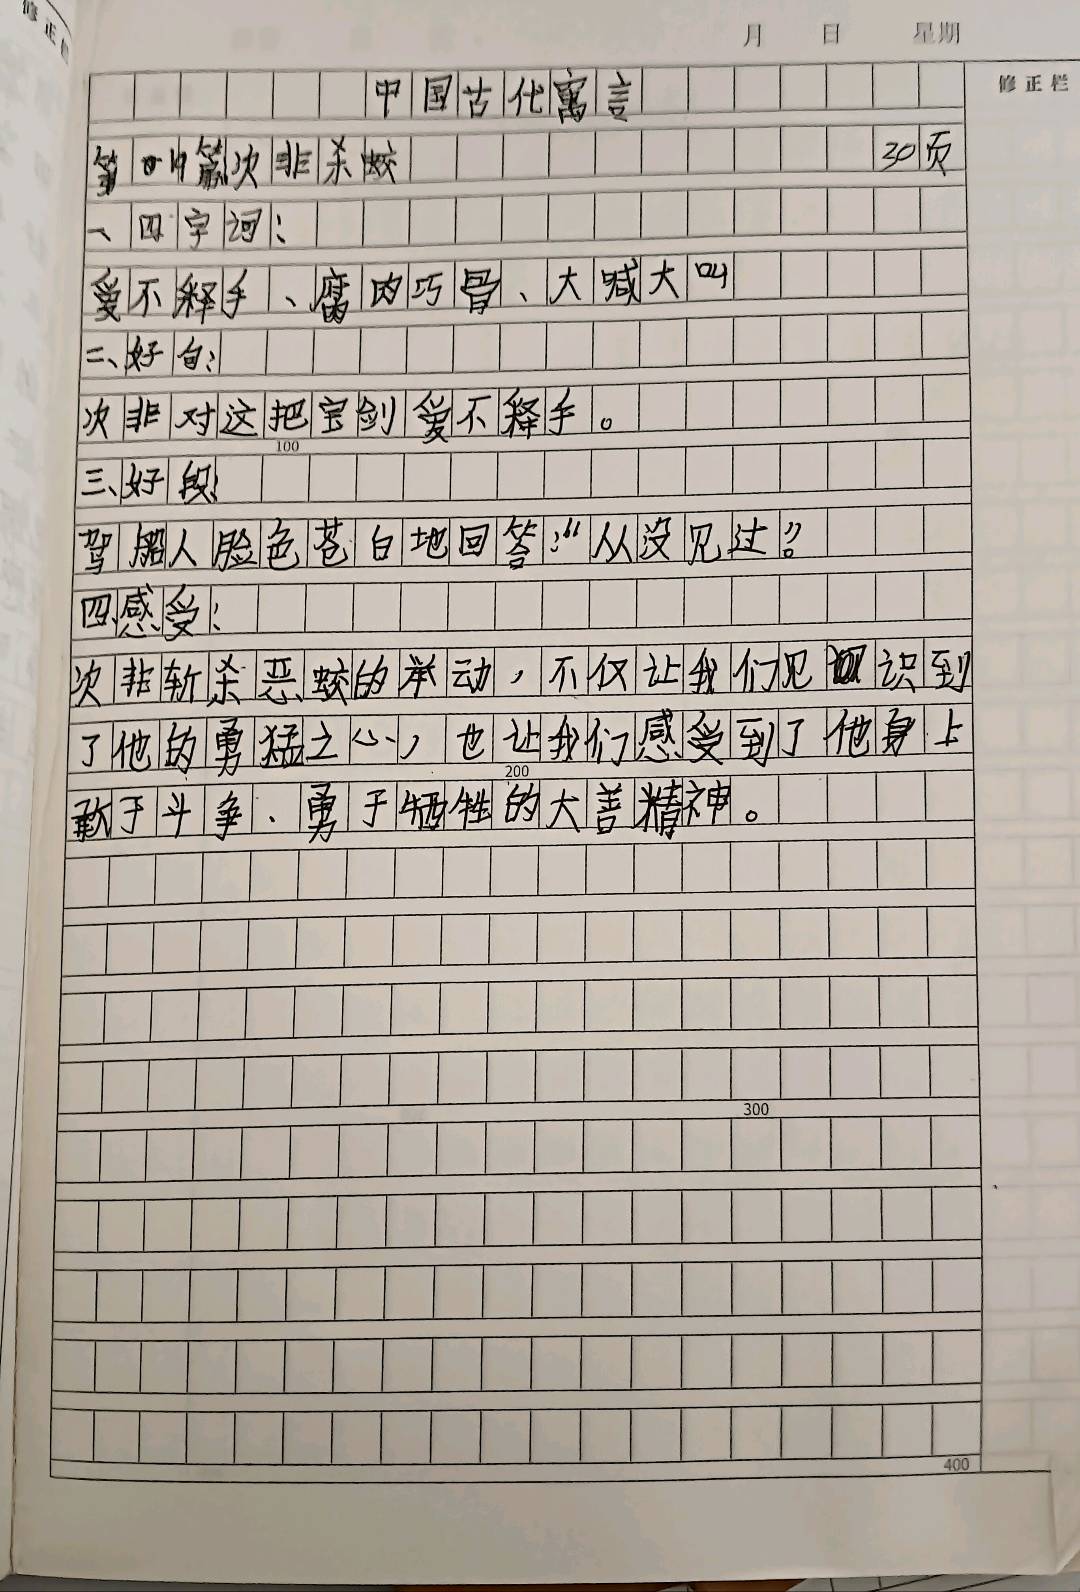 修正栏
月 日 星期
修正栏
中国古代寓言
第 篇次非杀蛟 30页
一、四字词:
爱不释手、腐肉巧骨、大喊大叫
二、好句:
次非对这把宝剑爱不释手。
100
三、好段:
驾船人脸色苍白地回答:“从没见过”。
四、感受:
次非斩杀恶蛟的举动,不仅让我们见识到
了他的勇猛之心,也让我们感受到了他身上
200
敢于斗争、勇于牺牲的大善精神。
300
400